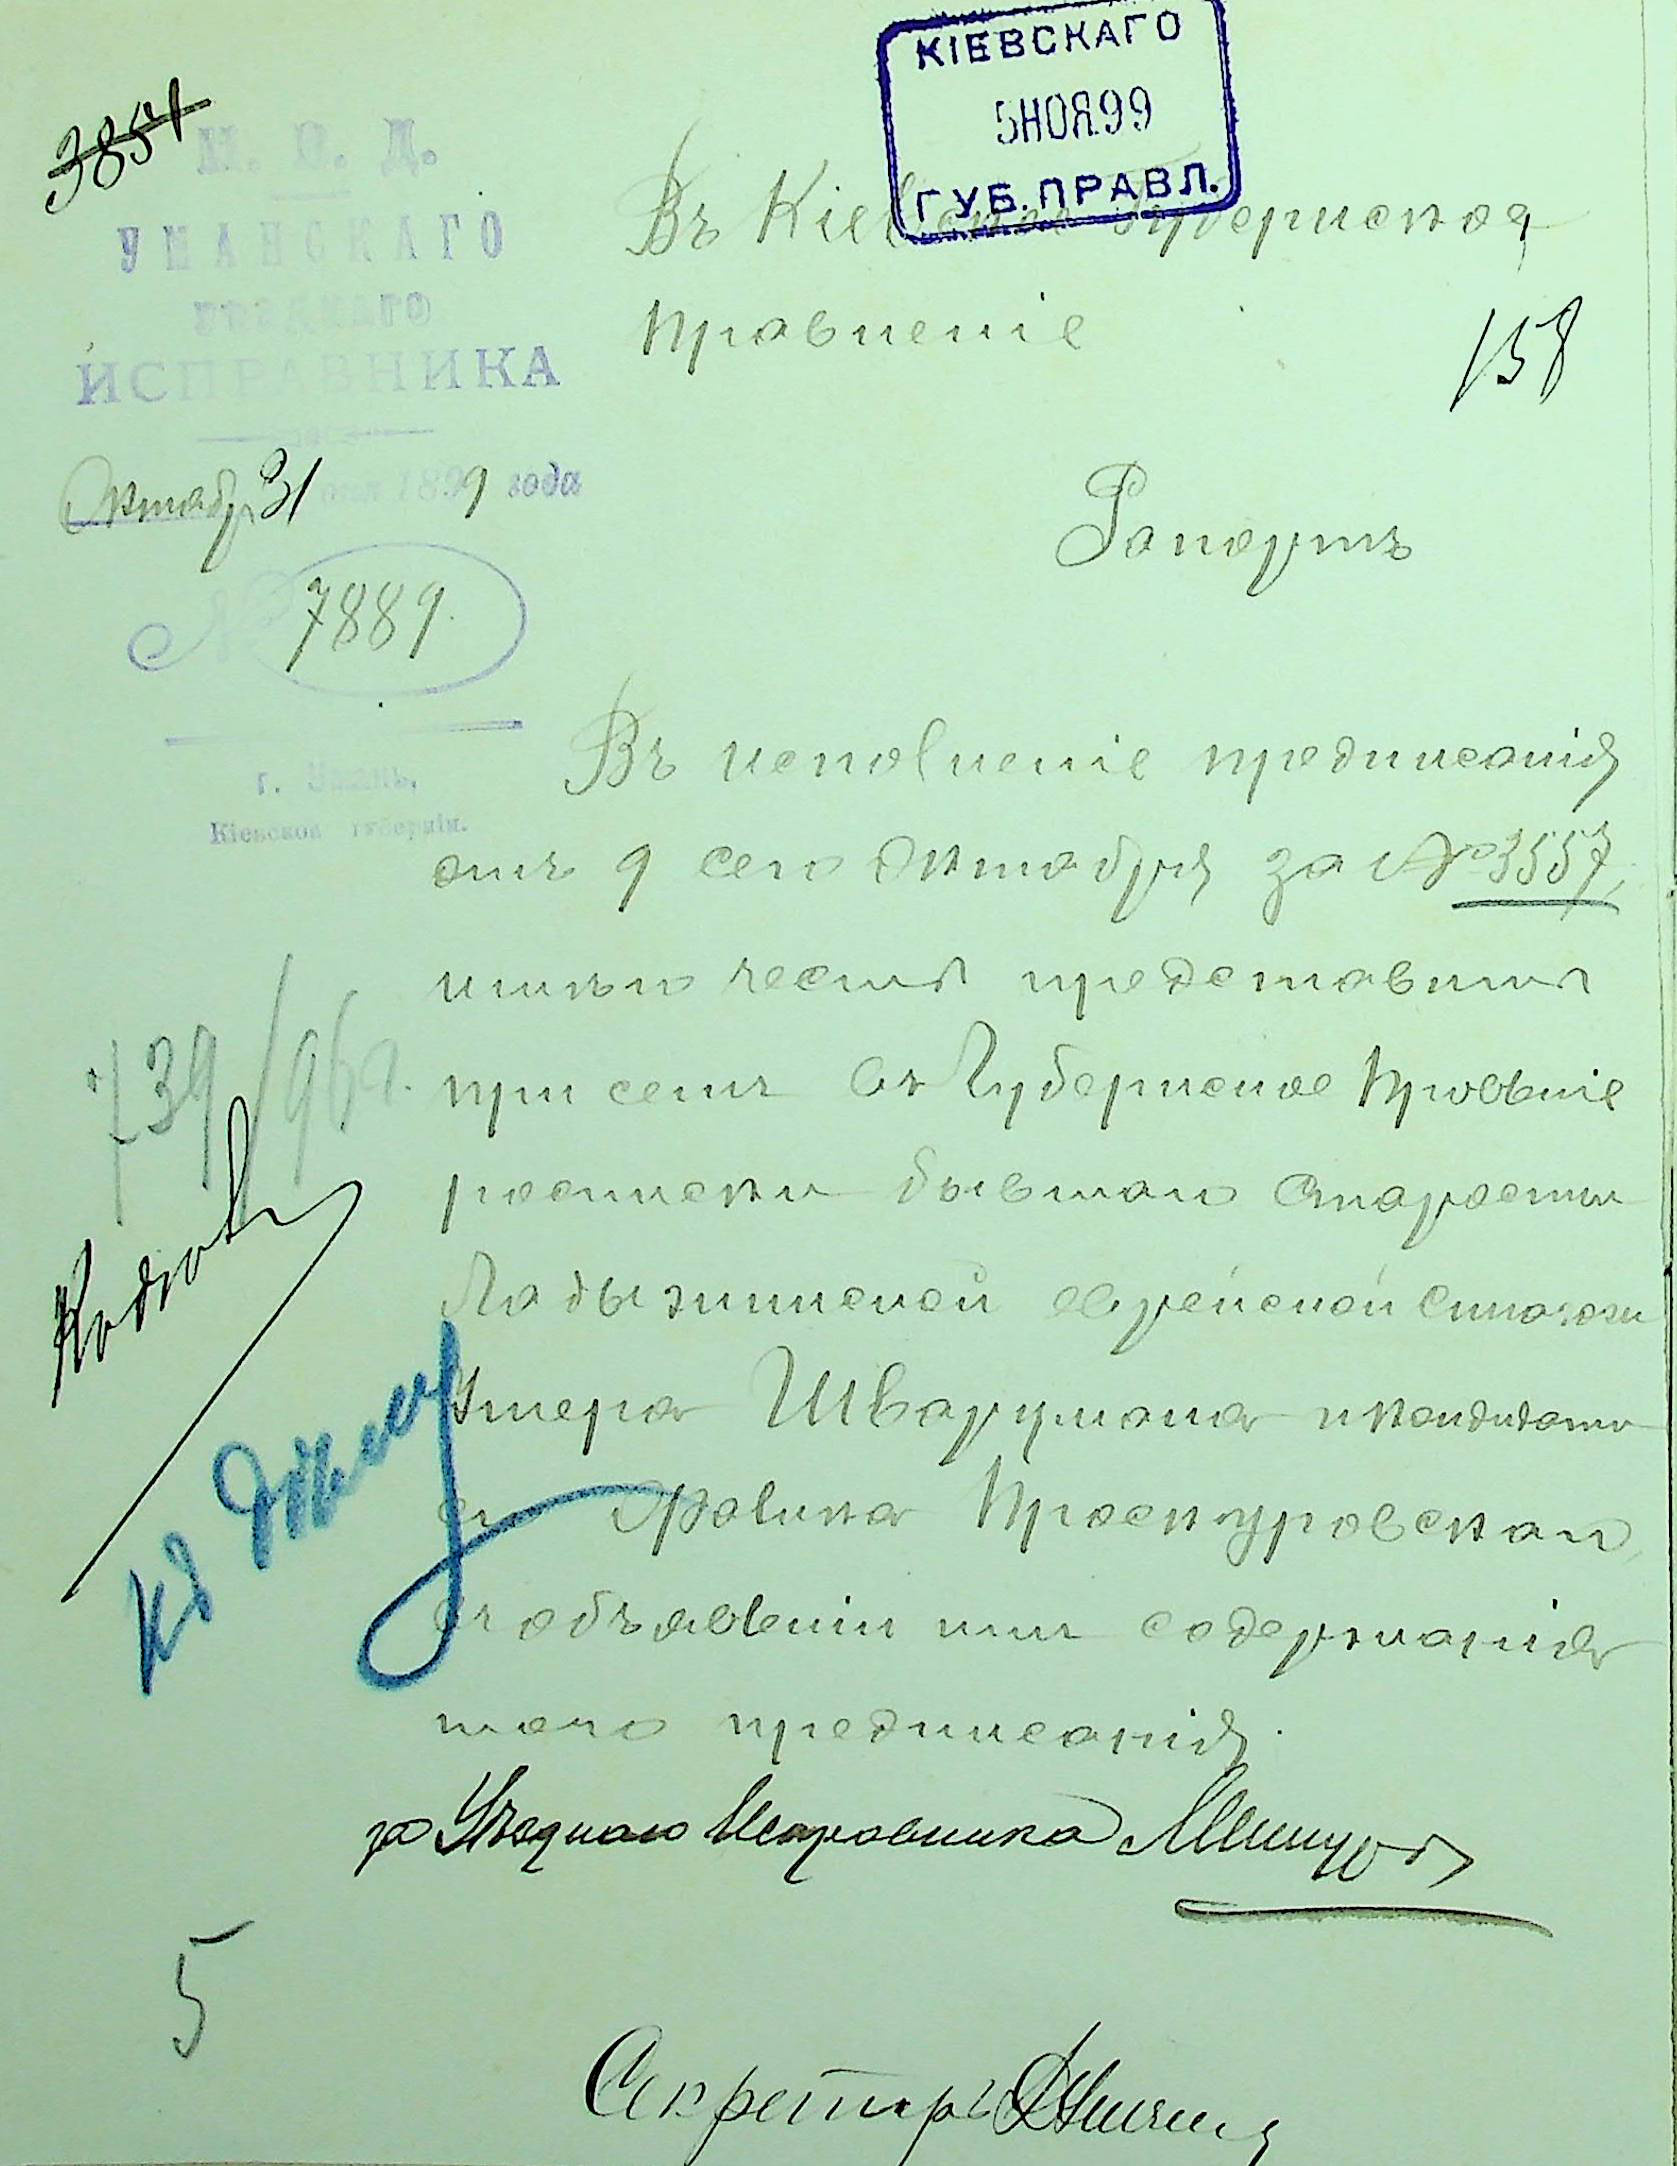 КІЕВСКАГО
5 НОЯ 99
ГУБ. ПРАВЛ.
3851
М. В. Д.
УМАНСКАГО
УѢЗДНАГО
ИСПРАВНИКА
Октября 31 дня 1899 года
№ 7889.
г. Умань,
Кіевской губерніи.
Въ Кіевское Губернское
Правленіе
158
Рапортъ
Въ исполненіе предписанія
отъ 9 сего Октября за № 3557,
имѣю честь представить
при семъ въ Губернское Правленіе
росписки бывшаго старосты
Ладыжинской еврейской синагоги
Шварцмана и кандидата
его Проскуровскаго,
въ объявленіи имъ содержанія
того предписанія.
739/96 г.
Къ дѣлу
за Уѣзднаго Исправника
5
Секретарь